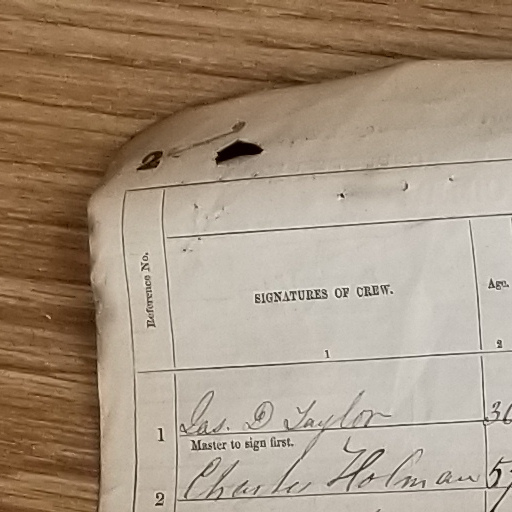 2
Reference No.
SIGNATURES OF CREW.
Age.
1
2
1 Jas. D Taylor
Master to sign first.
2 Charles Holman